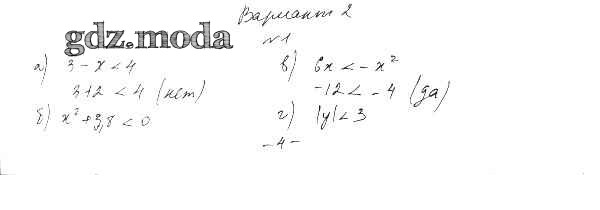 Вариант 2
gdz.moda
№1
а) 3 - x < 4
3+2 < 4 (нет)
б) x² + 3,8 < 0
в) 6x < - x²
-12 < - 4 (да)
г) |y| < 3
- 4 -